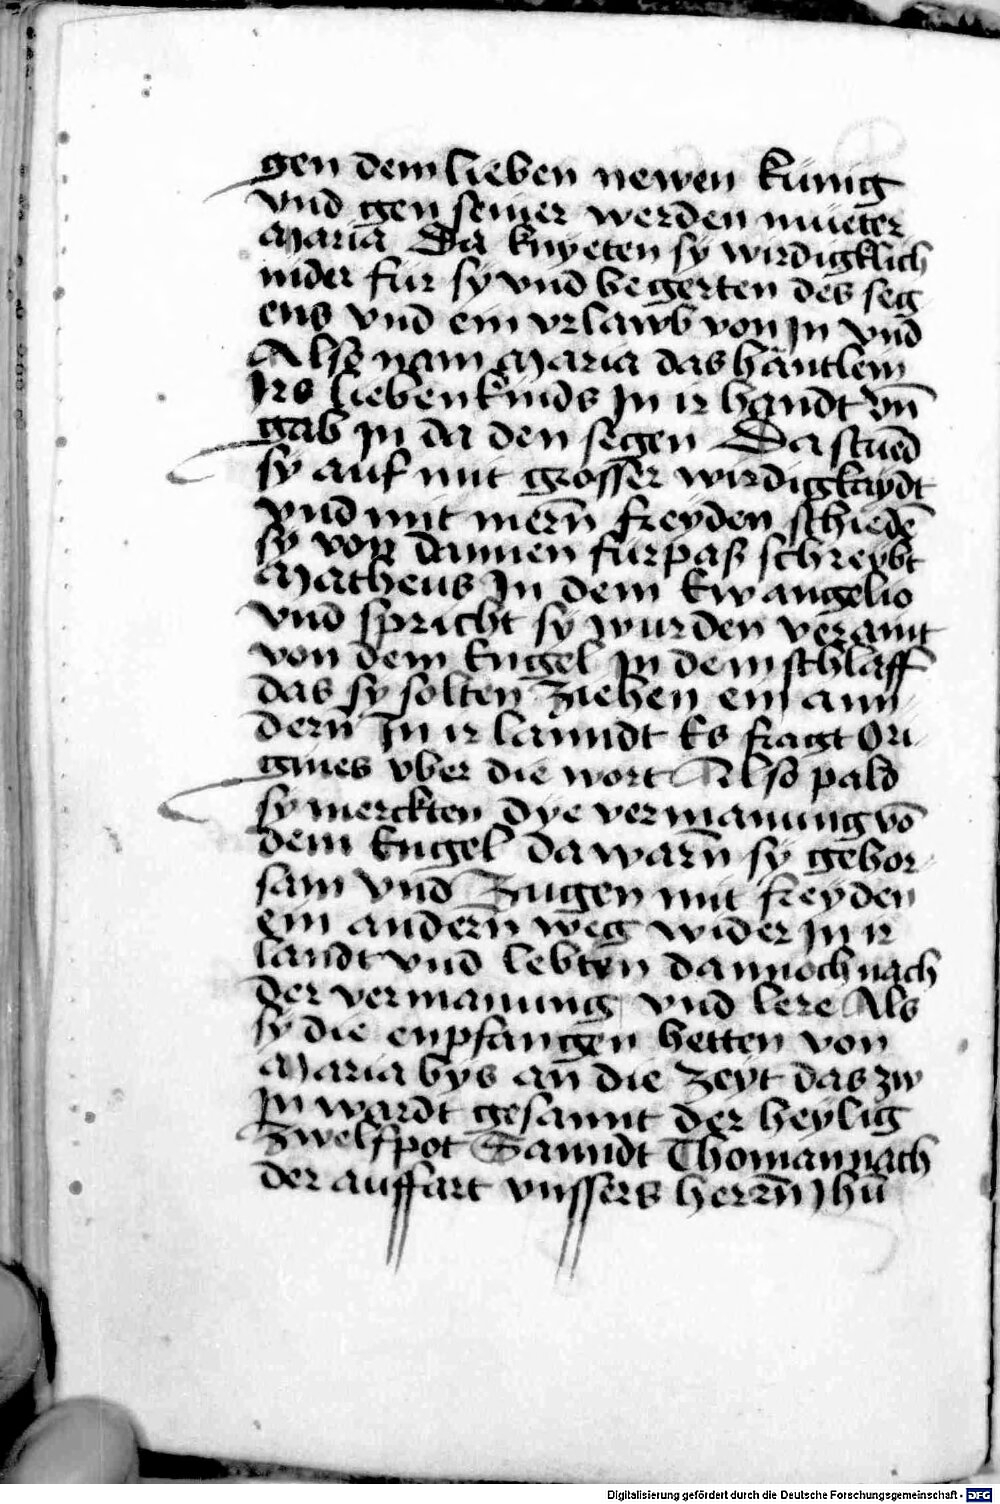 gen dem lieben newen künig
vnd gen seiner werden mueter
Maria Da knyeten sy wirdigklich
nider für sy vnd begerten des seg
ens vnd ein vrlawb von In vnd
Also nam Maria das häntlein
Irs lieben kinds In ir handt vn̄
gab In da den segen Da stuēd
sy auf mit grosser wirdigkaydt
vnd mit mern̄ freyden schiedē
sy von dannen fürpaß schreybt
Matheus In dem Ewangelio
vnd spricht sy wurden veramt
von dem Engel In dem schlaff
das sy solten ziehen ein ann
dern̄ In ir lanndt Es fragt Ori
gines vber die wort Also pald
sy merckten dye vermanung vō
dem Engel da warn̄ sy gehor
sam vnd Zugen mit freyden
ein andern weg wider In ir
landt vnd lebten dannoch nach
der vermanung vnd lere Als
sy die enpfangen hetten von
Maria bys an die zeyt das zw
In wardt gesannt der heylig
zwelfpot Sanndt Thoman nach
der auffart vnssers herrn̄ Jhū
Digitalisierung gefördert durch die Deutsche Forschungsgemeinschaft - DFG